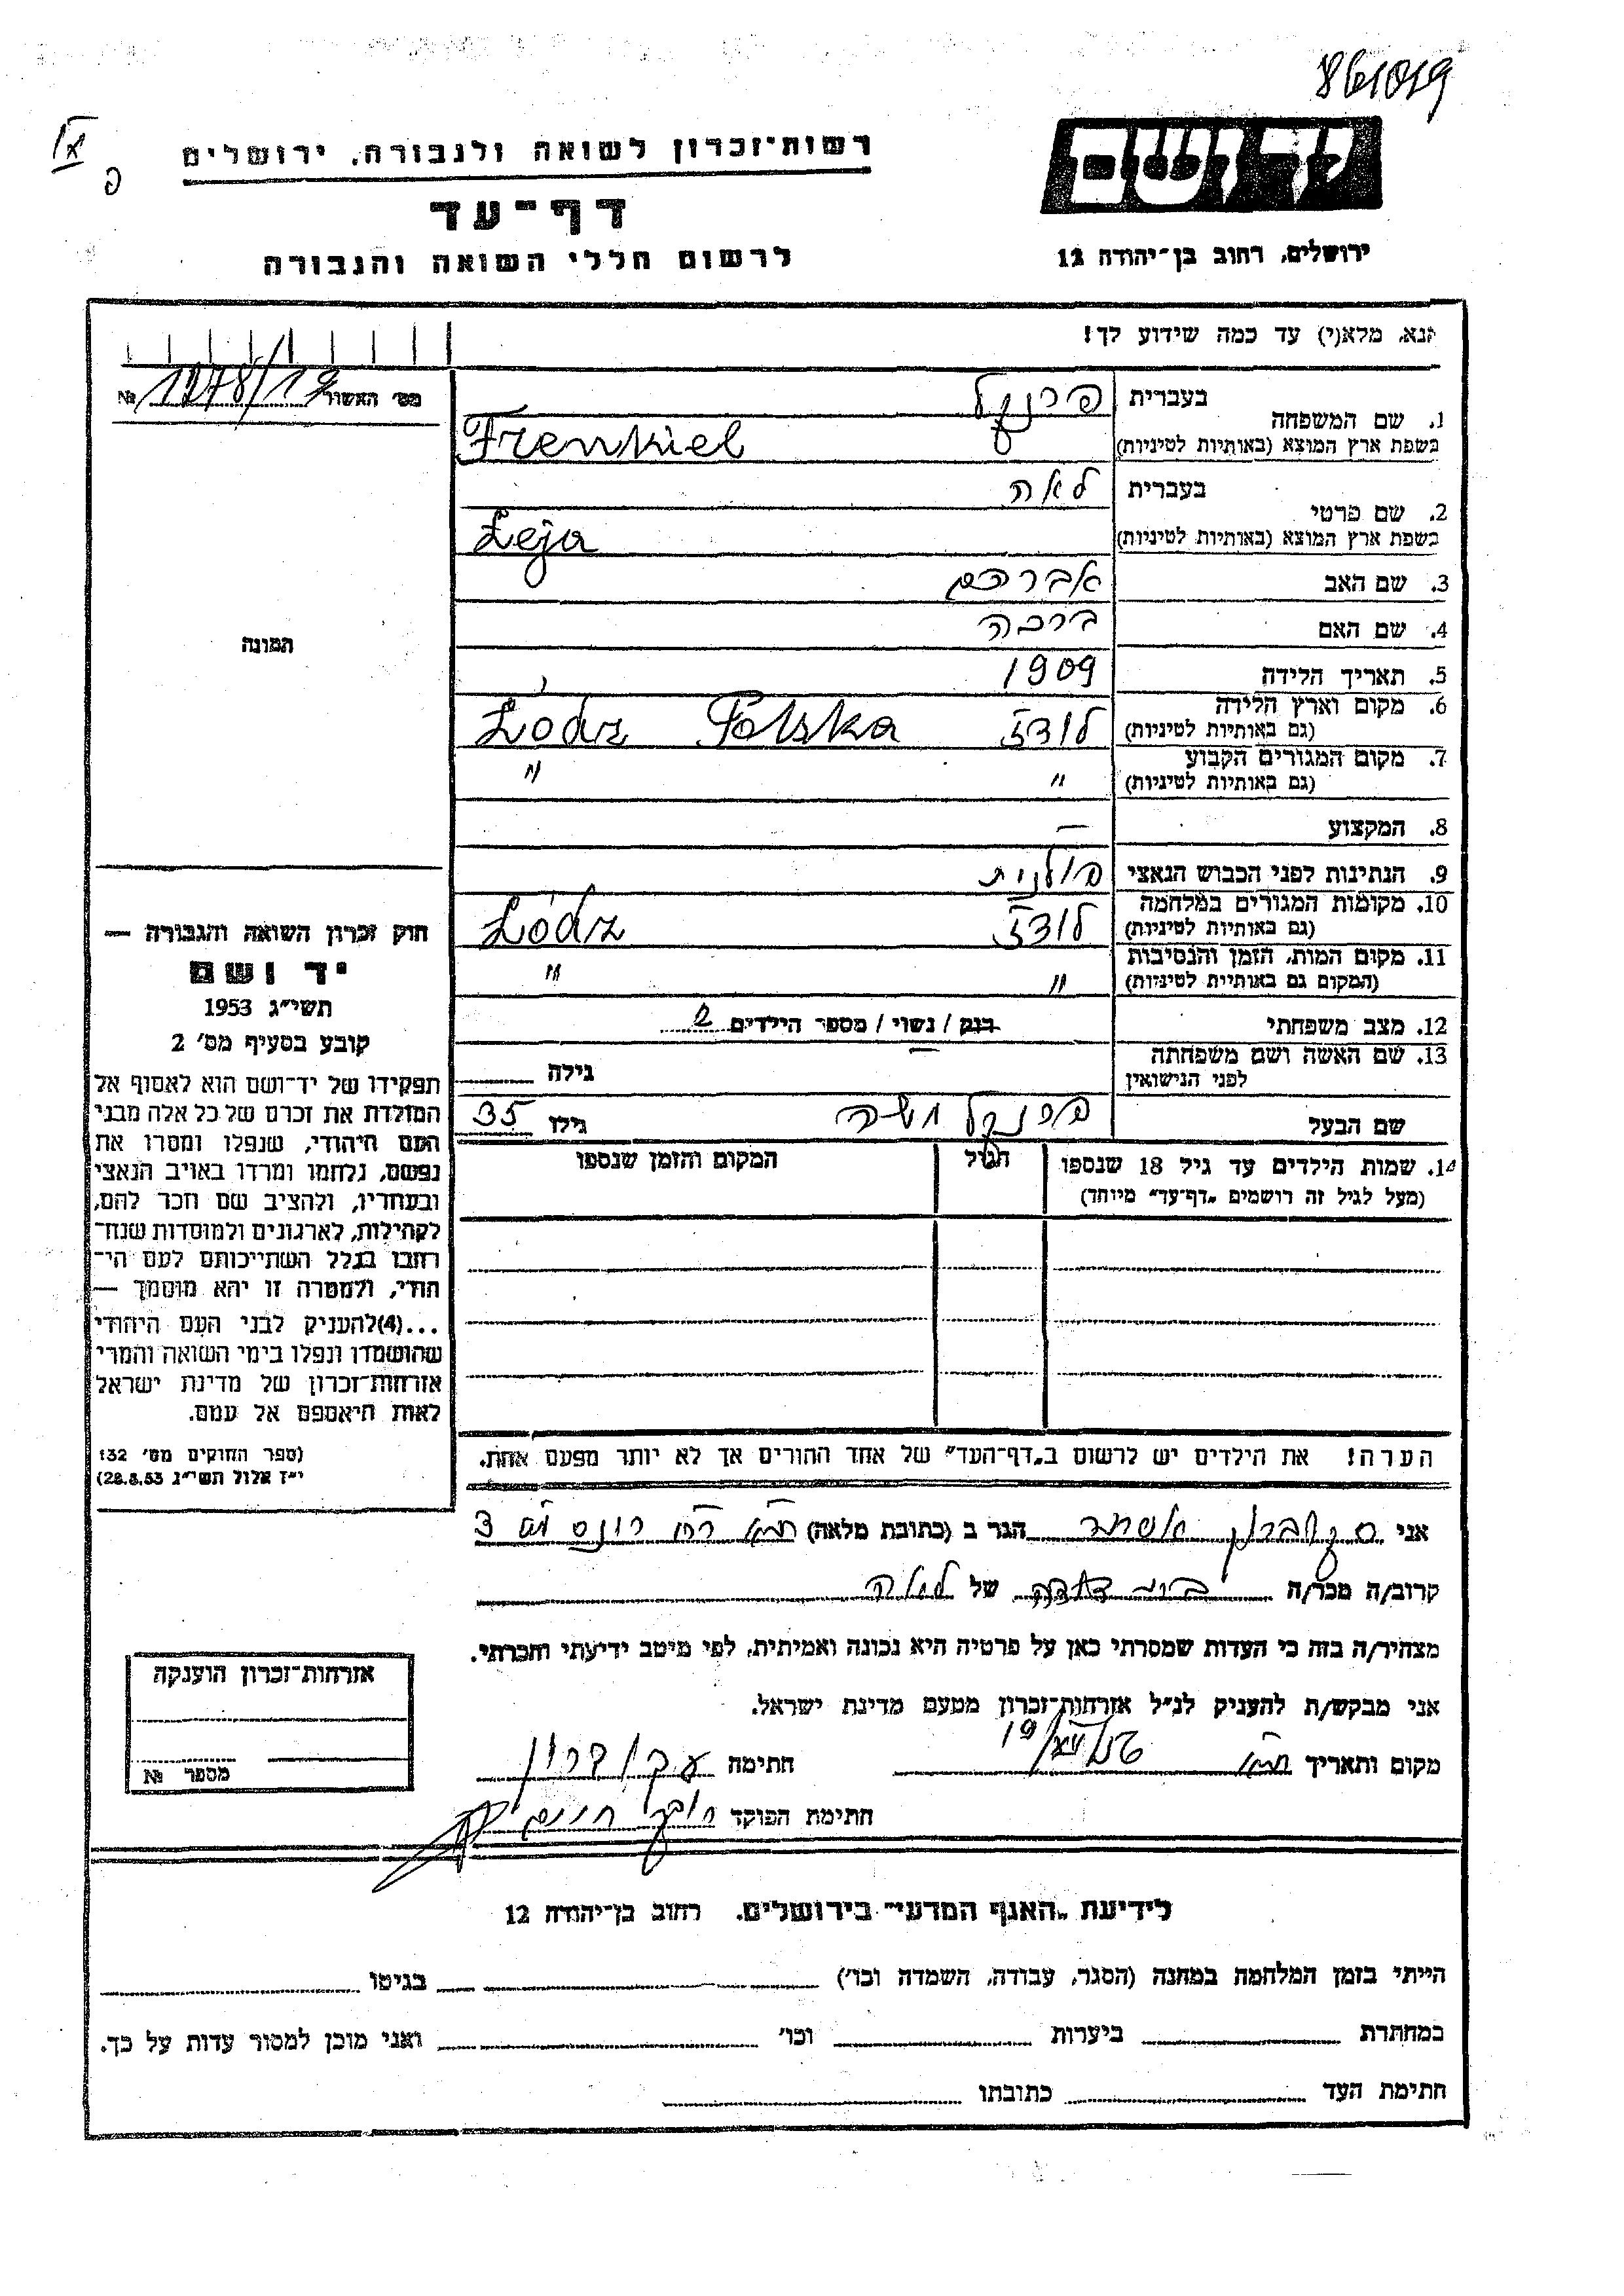 861019
יד ושם
רשות־זכרון לשואה ולגבורה, ירושלים
דף־עד
לרשום חללי השואה והגבורה
ירושלים, רחוב בן־יהודה 12
פ
נא, מלא(י) עד כמה שידוע לך!
מס׳ האשור № 1278/19
1. שם המשפחה
בעברית פרנקל
בשפת ארץ המוצא (באותיות לטיניות) Frenkiel
2. שם פרטי
בעברית לאה
בשפת ארץ המוצא (באותיות לטיניות) Leja
3. שם האב אברהם
4. שם האם ברכה
5. תאריך הלידה 1909
6. מקום וארץ הלידה (גם באותיות לטיניות) לודז Łódz Polska
7. מקום המגורים הקבוע (גם באותיות לטיניות) " "
8. המקצוע —
9. הנתינות לפני הכבוש הנאצי פולנית
10. מקומות המגורים במלחמה (גם באותיות לטיניות) לודז Łódz
11. מקום המות, הזמן והנסיבות (המקום גם באותיית לטיניות) " "
12. מצב משפחתי רווק / נשוי / מספר הילדים 2
13. שם האשה ושם משפחתה לפני הנישואין — גילה
שם הבעל פרנקל משה גילו 35
14. שמות הילדים עד גיל 18 שנספו
(מעל לגיל זה רושמים „דף־עד״ מיוחד)
הגיל
המקום והזמן שנספו
הערה! את הילדים יש לרשום ב„דף־העד״ של אחד ההורים אך לא יותר מפעם אחת.
התמונה
חוק זכרון השואה והגבורה —
יד ושם
תשי״ג 1953
קובע בסעיף מס׳ 2
תפקידו של יד־ושם הוא לאסוף אל
המולדת את זכרם של כל אלה מבני
העם היהודי, שנפלו ומסרו את
נפשם, נלחמו ומרדו באויב הנאצי
ובעוזריו, ולהציב שם וזכר להם,
לקהילות, לארגונים ולמוסדות שנח־
רבו בגלל השתייכותם לעם הי־
הודי, ולמטרה זו יהא מוסמך —
...(4)להעניק לבני העם היהודי
שהושמדו ונפלו בימי השואה והמרי
אזרחות־זכרון של מדינת ישראל
לאות היאספם אל עמם.
(ספר החוקים מס׳ 132
י״ז אלול תשי״ג 28.8.53)
אני אסתר הגר ב (כתובת מלאה) 3
קרוב/ה מכר/ה בת דודה של לאה
מצהיר/ה בזה כי העדות שמסרתי כאן על פרטיה היא נכונה ואמיתית, לפי מיטב ידיעתי והכרתי.
אני מבקש/ת להעניק לנ״ל אזרחות־זכרון מטעם מדינת ישראל.
מקום ותאריך חתימה
חתימת הפוקד חיים
אזרחות־זכרון הוענקה
מספר №
לידיעת „האגף המדעי״ בירושלים. רחוב בן־יהודה 12
הייתי בזמן המלחמה במחנה (הסגר, עבודה, השמדה וכו׳) בגיטו
במחתרת ביערות וכו׳ ואני מוכן למסור עדות על כך.
חתימת העד כתובתו